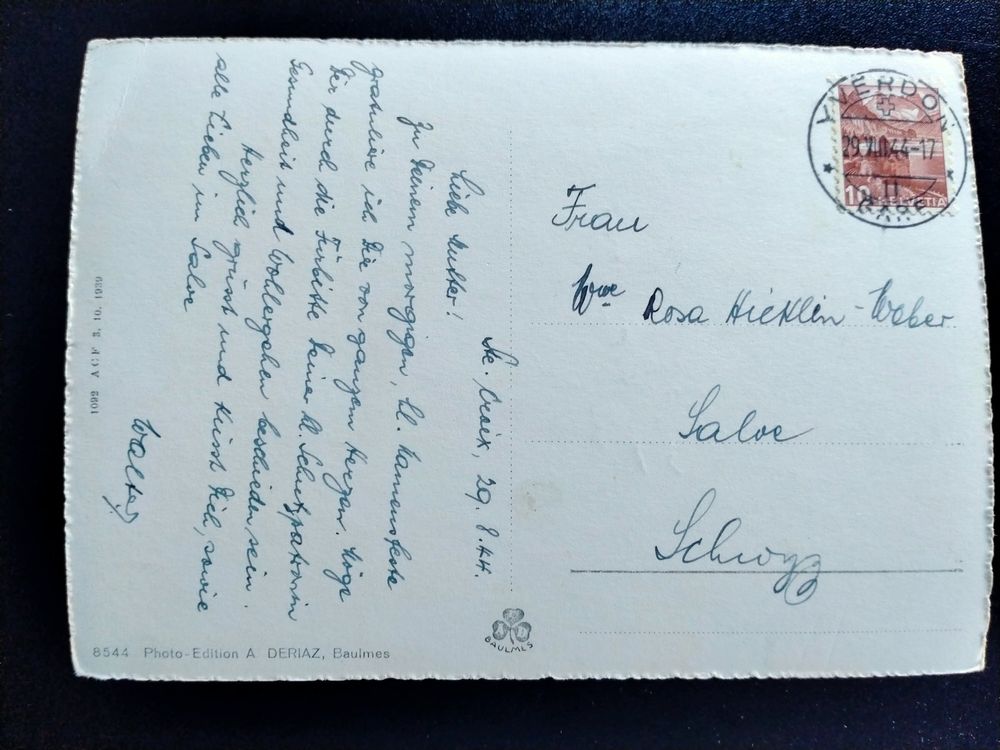 St. Croix, 29. 8. 44.
Liebe Mutter!
Zu Deinem morgigen, hl. Namensfeste
gratuliere ich Dir von ganzem Herzen. Möge
Dir durch die Fürbitte Deiner hl. Schutzpatronin
Gesundheit und Wohlergehen beschieden sein.
Herzlich grüsst und küsst Dich, sowie
alle Lieben im Salve
Walter
Frau
Wwe Rosa Hicklin-Weber
Salve
Schwyz
YVERDON
29.VIII.44-17
II
GARE
10 HELVETIA
1092 A C F 3. 10. 1939
8544 Photo-Edition A. DERIAZ, Baulmes
BAULMES